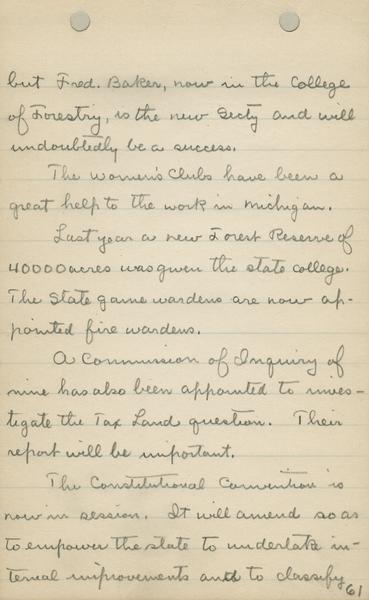 but Fred. Baker, now in the College
of Forestry, is the new Secty and will
undoubtedly be a success.
The women's Clubs have been a
great help to the work in Michigan.
Last year a new Forest Reserve of
40000 acres was given the state college.
The State game wardens are now ap-
pointed fire wardens.
A Commission of Inquiry of
nine has also been appointed to inves-
tigate the Tax Land question. Their
report will be important.
The Constitutional Convention is
now in session. It will amend so as
to empower the state to undertake in-
ternal improvements and to classify
61